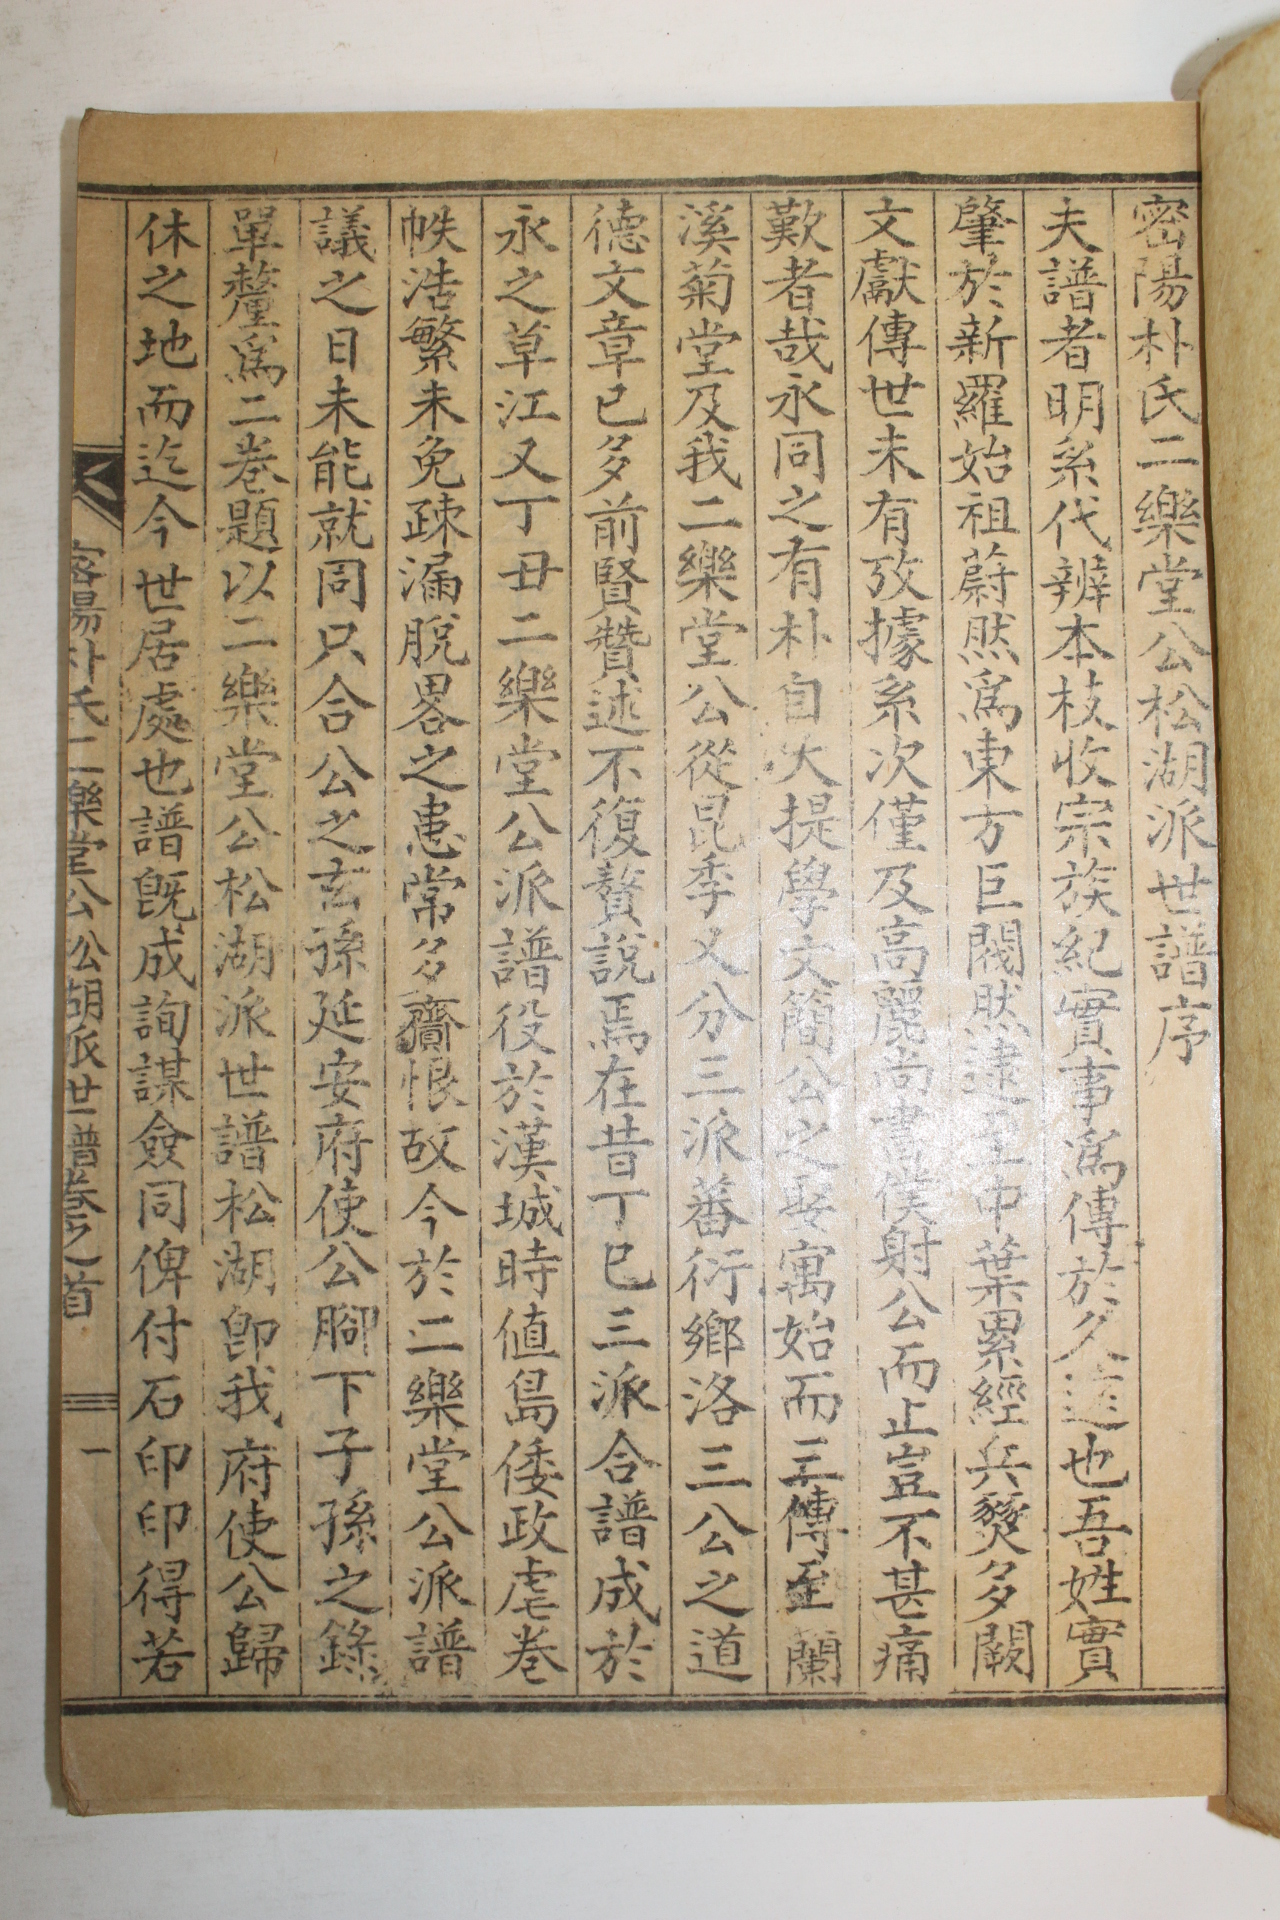 密陽朴氏二樂堂公松湖派世譜序
夫譜者明系代辨本枝收宗族紀實事爲傳於久遠也吾姓實
肇於新羅始祖蔚然爲東方巨閥然逮至中葉累經兵燹多闕
文獻傳世未有攷據系次僅及高麗尚書僕射公而止豈不甚痛
歎者哉永同之有朴自大提學文簡公之娶寓始而三傳至蘭
溪菊堂及我二樂堂公從昆季又分三派蕃衍鄕洛三公之道
德文章已多前賢贊述不復贅說焉在昔丁巳三派合譜成於
永之草江又丁丑二樂堂公派譜役於漢城時値島倭政虐卷
帙浩繁未免疎漏脫畧之患常多齎恨故今於二樂堂公派譜
議之日未能就同只合公之玄孫延安府使公腳下子孫之錄
單釐爲二卷題以二樂堂公松湖派世譜松湖卽我府使公歸
休之地而迄今世居處也譜旣成詢謀僉同俾付石印印得若
密陽朴氏二樂堂公松湖派世譜卷之首
一